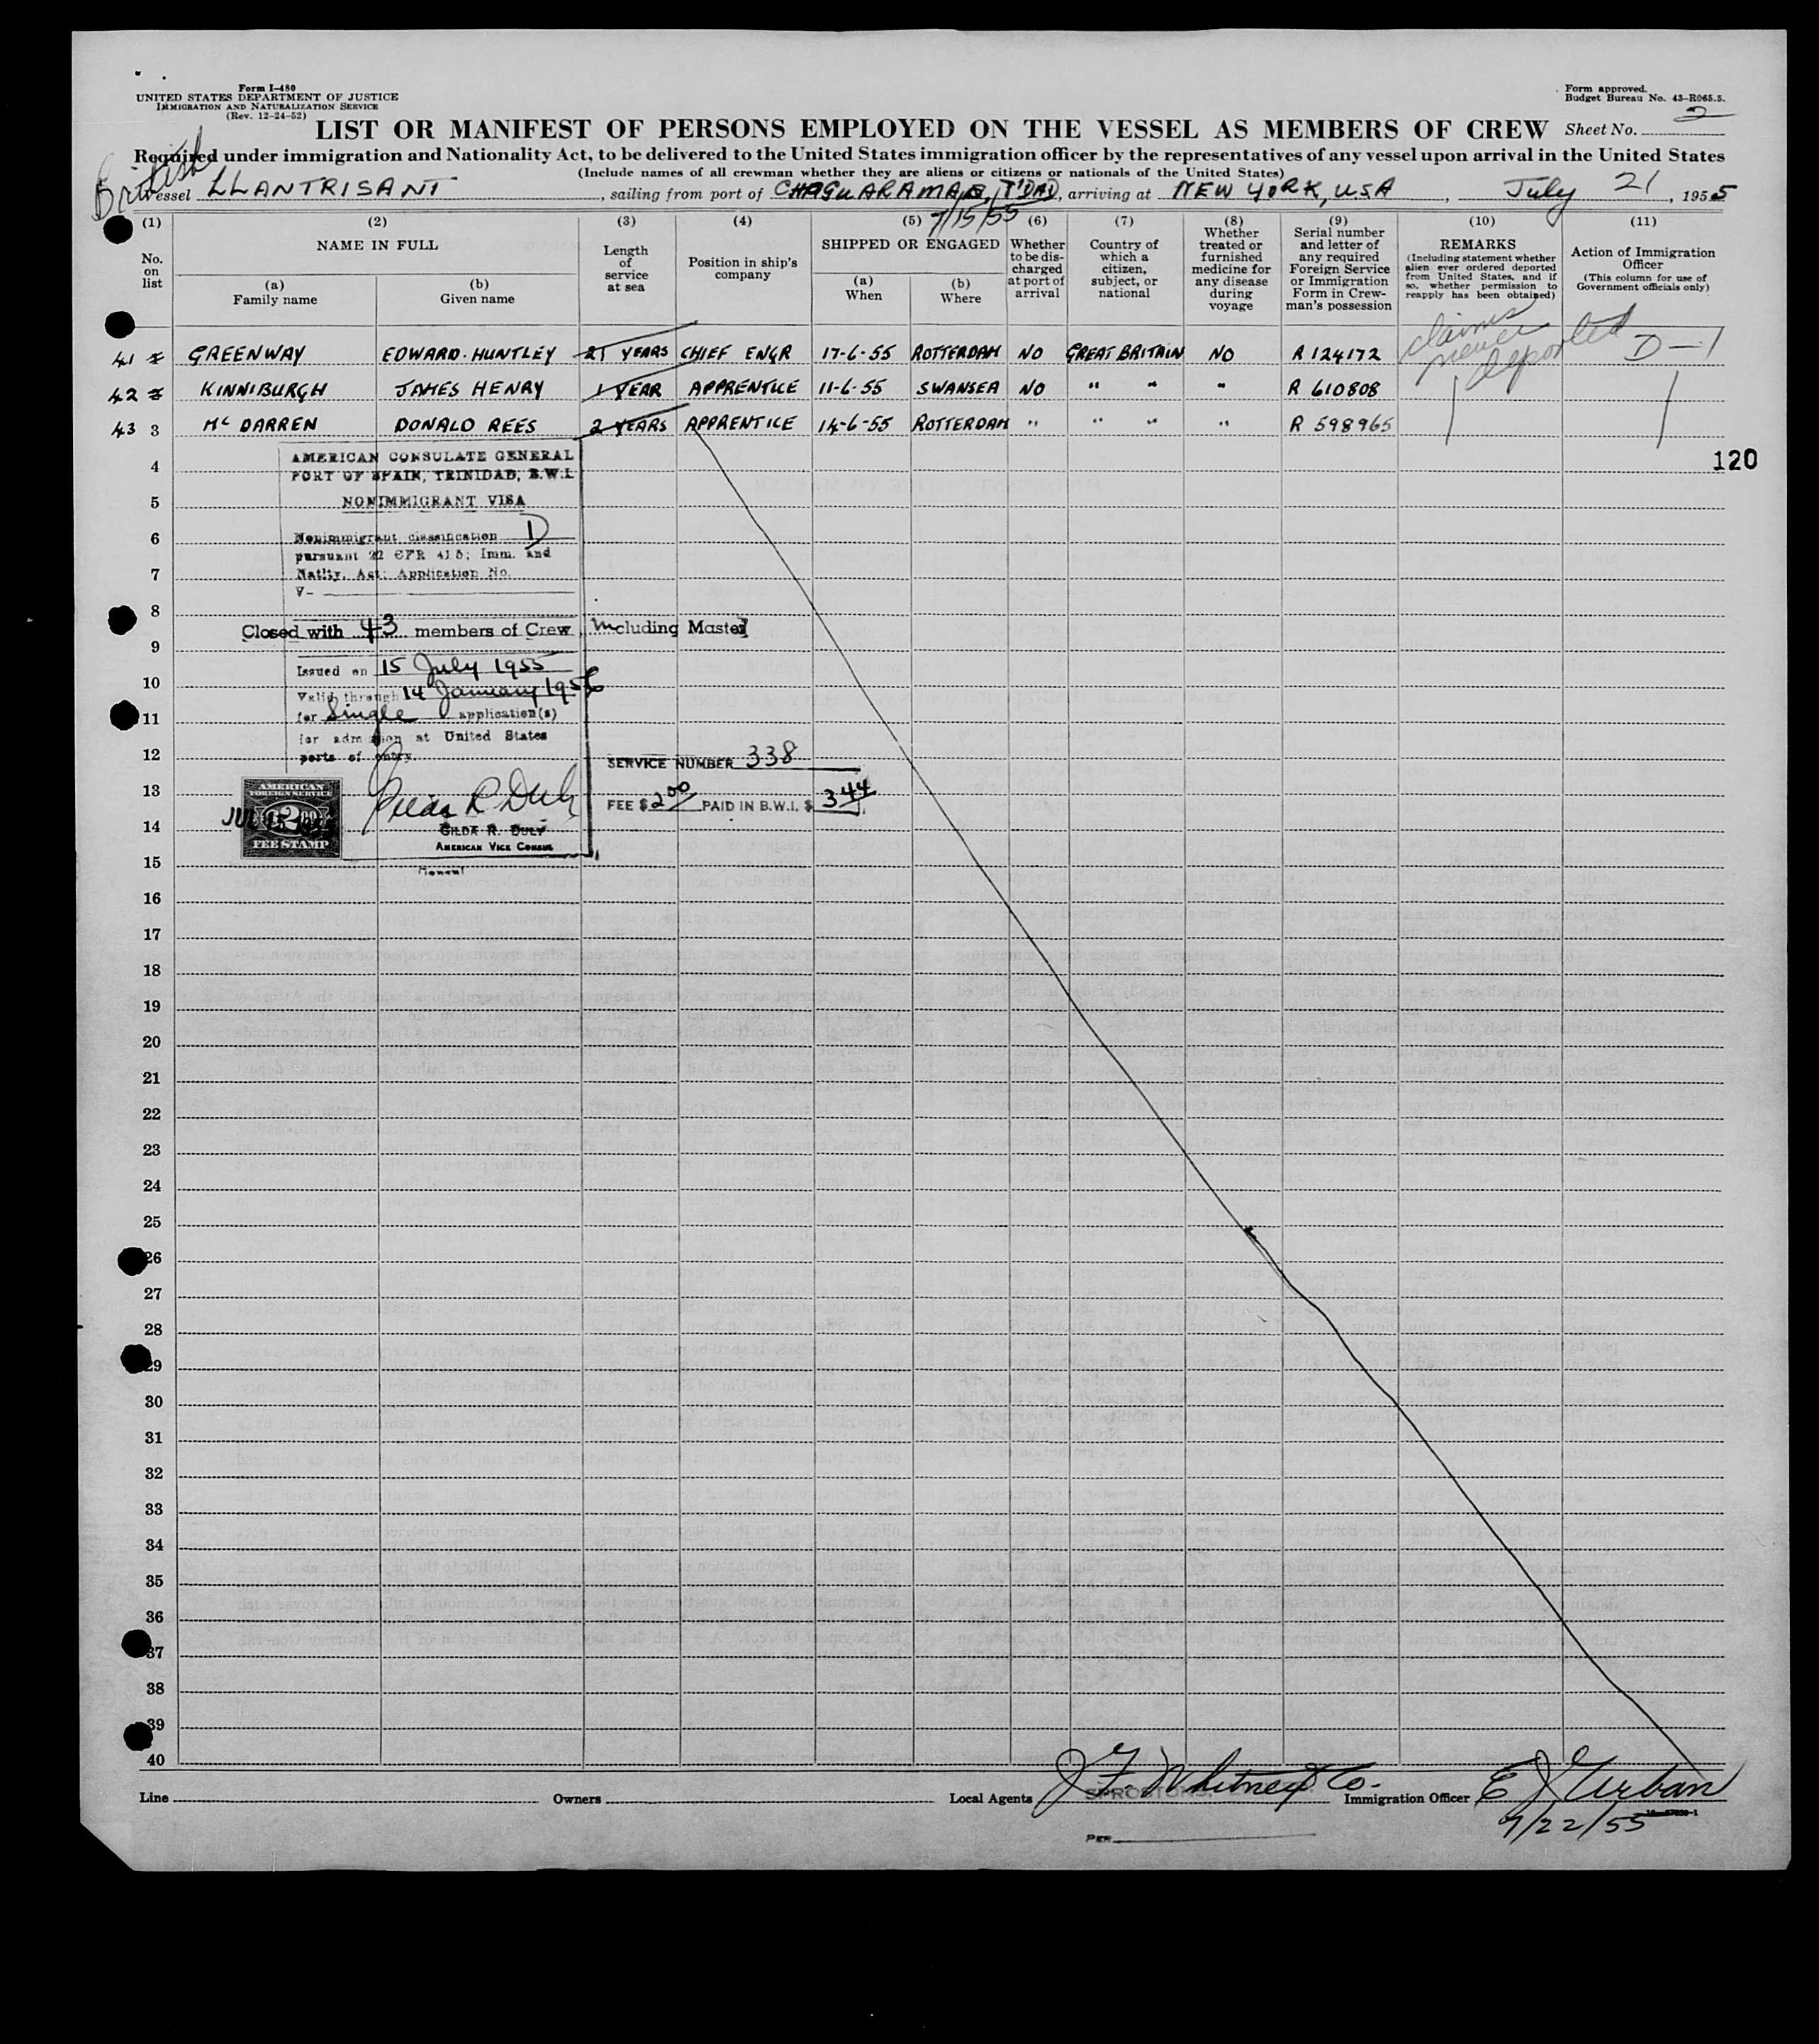 Form I-480
UNITED STATES DEPARTMENT OF JUSTICE
IMMIGRATION AND NATURALIZATION SERVICE
(Rev. 12-24-52)
Form approved.
Budget Bureau No. 43-R065.5.
LIST OR MANIFEST OF PERSONS EMPLOYED ON THE VESSEL AS MEMBERS OF CREW Sheet No. 2
Required under immigration and Nationality Act, to be delivered to the United States immigration officer by the representatives of any vessel upon arrival in the United States
(Include names of all crewman whether they are aliens or citizens or nationals of the United States)
British
Vessel LLANTRISANT, sailing from port of CHAGUARAMAS, T'DAD, arriving at NEW YORK, U.S.A, July 21, 1955
7/15/55
(1) (2) (3) (4) (5) (6) (7) (8) (9) (10) (11)
No. on list
NAME IN FULL
(a) Family name
(b) Given name
Length of service at sea
Position in ship's company
SHIPPED OR ENGAGED
(a) When
(b) Where
Whether to be discharged at port of arrival
Country of which a citizen, subject, or national
Whether treated or furnished medicine for any disease during voyage
Serial number and letter of any required Foreign Service or Immigration Form in Crewman's possession
REMARKS
(Including statement whether alien ever ordered deported from United States, and if so, whether permission to reapply has been obtained)
Action of Immigration Officer
(This column for use of Government officials only)
claims never deported
41 GREENWAY EDWARD HUNTLEY 21 YEARS CHIEF ENGR 17-6-55 ROTTERDAM NO GREAT BRITAIN NO R 124172 D-1
42 KINNIBURGH JAMES HENRY 1 YEAR APPRENTICE 11-6-55 SWANSEA NO " " " R 610808
43 3 Mc DARREN DONALD REES 2 YEARS APPRENTICE 14-6-55 ROTTERDAM " " " " R 598965
120
AMERICAN CONSULATE GENERAL
PORT OF SPAIN, TRINIDAD, B.W.I.
NONIMMIGRANT VISA
Nonimmigrant classification D
pursuant 22 CFR 41.5; Imm. and
Natlty. Act; Application No.
V-
Closed with 43 members of Crew including Master
Issued on 15 July 1955
Valid through 14 January 1956
for Single application(s)
for admission at United States
ports of entry.
SERVICE NUMBER 338
FEE $ 2 00 PAID IN B.W.I. $ 3 44
AMERICAN
FOREIGN SERVICE
FEE STAMP
Gilda R Duly
GILDA R. DULY
AMERICAN VICE CONSUL
4
5
6
7
8
9
10
11
12
13
14
15
16
17
18
19
20
21
22
23
24
25
26
27
28
29
30
31
32
33
34
35
36
37
38
39
40
Line Owners Local Agents J. F. Whitney & Co. Immigration Officer E J Urban
SPROSTONS
PER
7/22/55